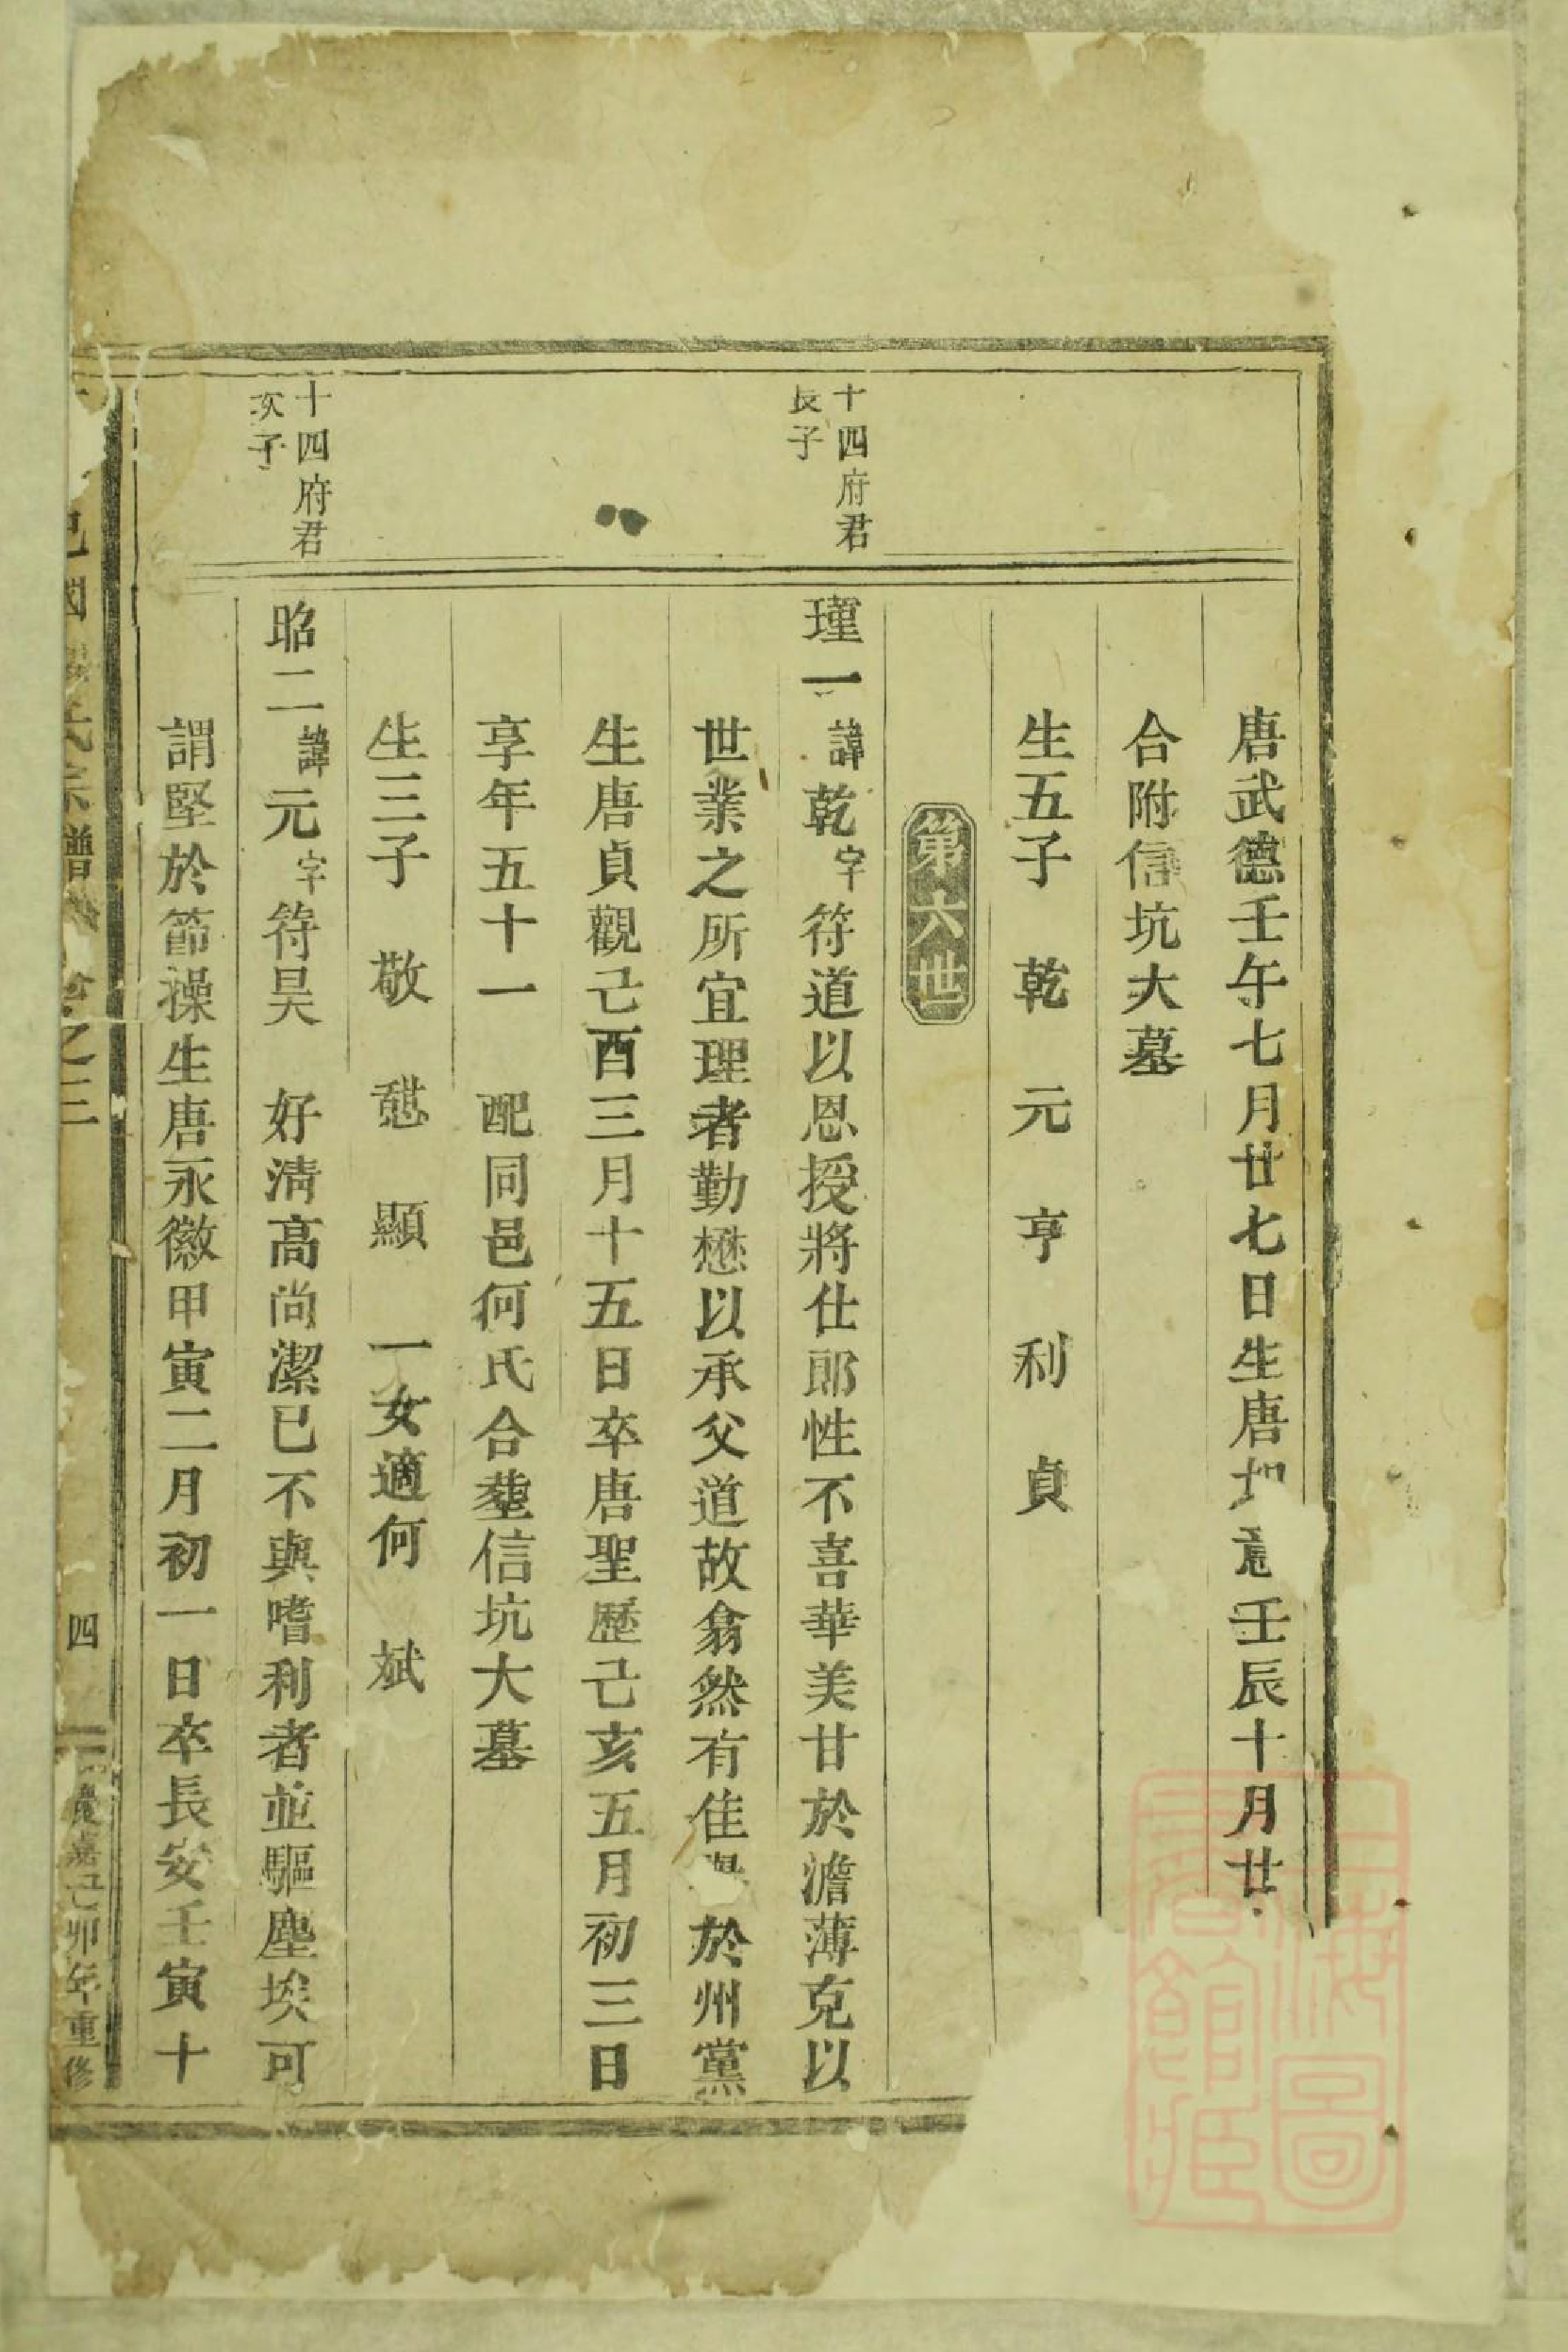 唐武德壬午七月廿七日生唐意壬辰十月廿
合附信坑大墓
生五子 乾 元 亨 利 貞
第六世
十四府君
長子
瑾一 諱乾字符道以恩授將仕郎性不喜華美甘於澹薄克以
世業之所宜理者勤懋以承父道故翕然有佳於州黨
生唐貞觀己酉三月十五日卒唐聖歷己亥五月初三日
享年五十一 配同邑何氏合塟信坑大墓
生三子 敬 顯 一女適何 斌
十四府君
次子
昭二 諱元字符昊 好清高尚潔已不與嗜利者並驅塵埃可
謂堅於節操生唐永徽甲寅二月初一日卒長安壬寅十
國氏宗譜之三
四
慶嘉己卯年重修
上海圖書館藏